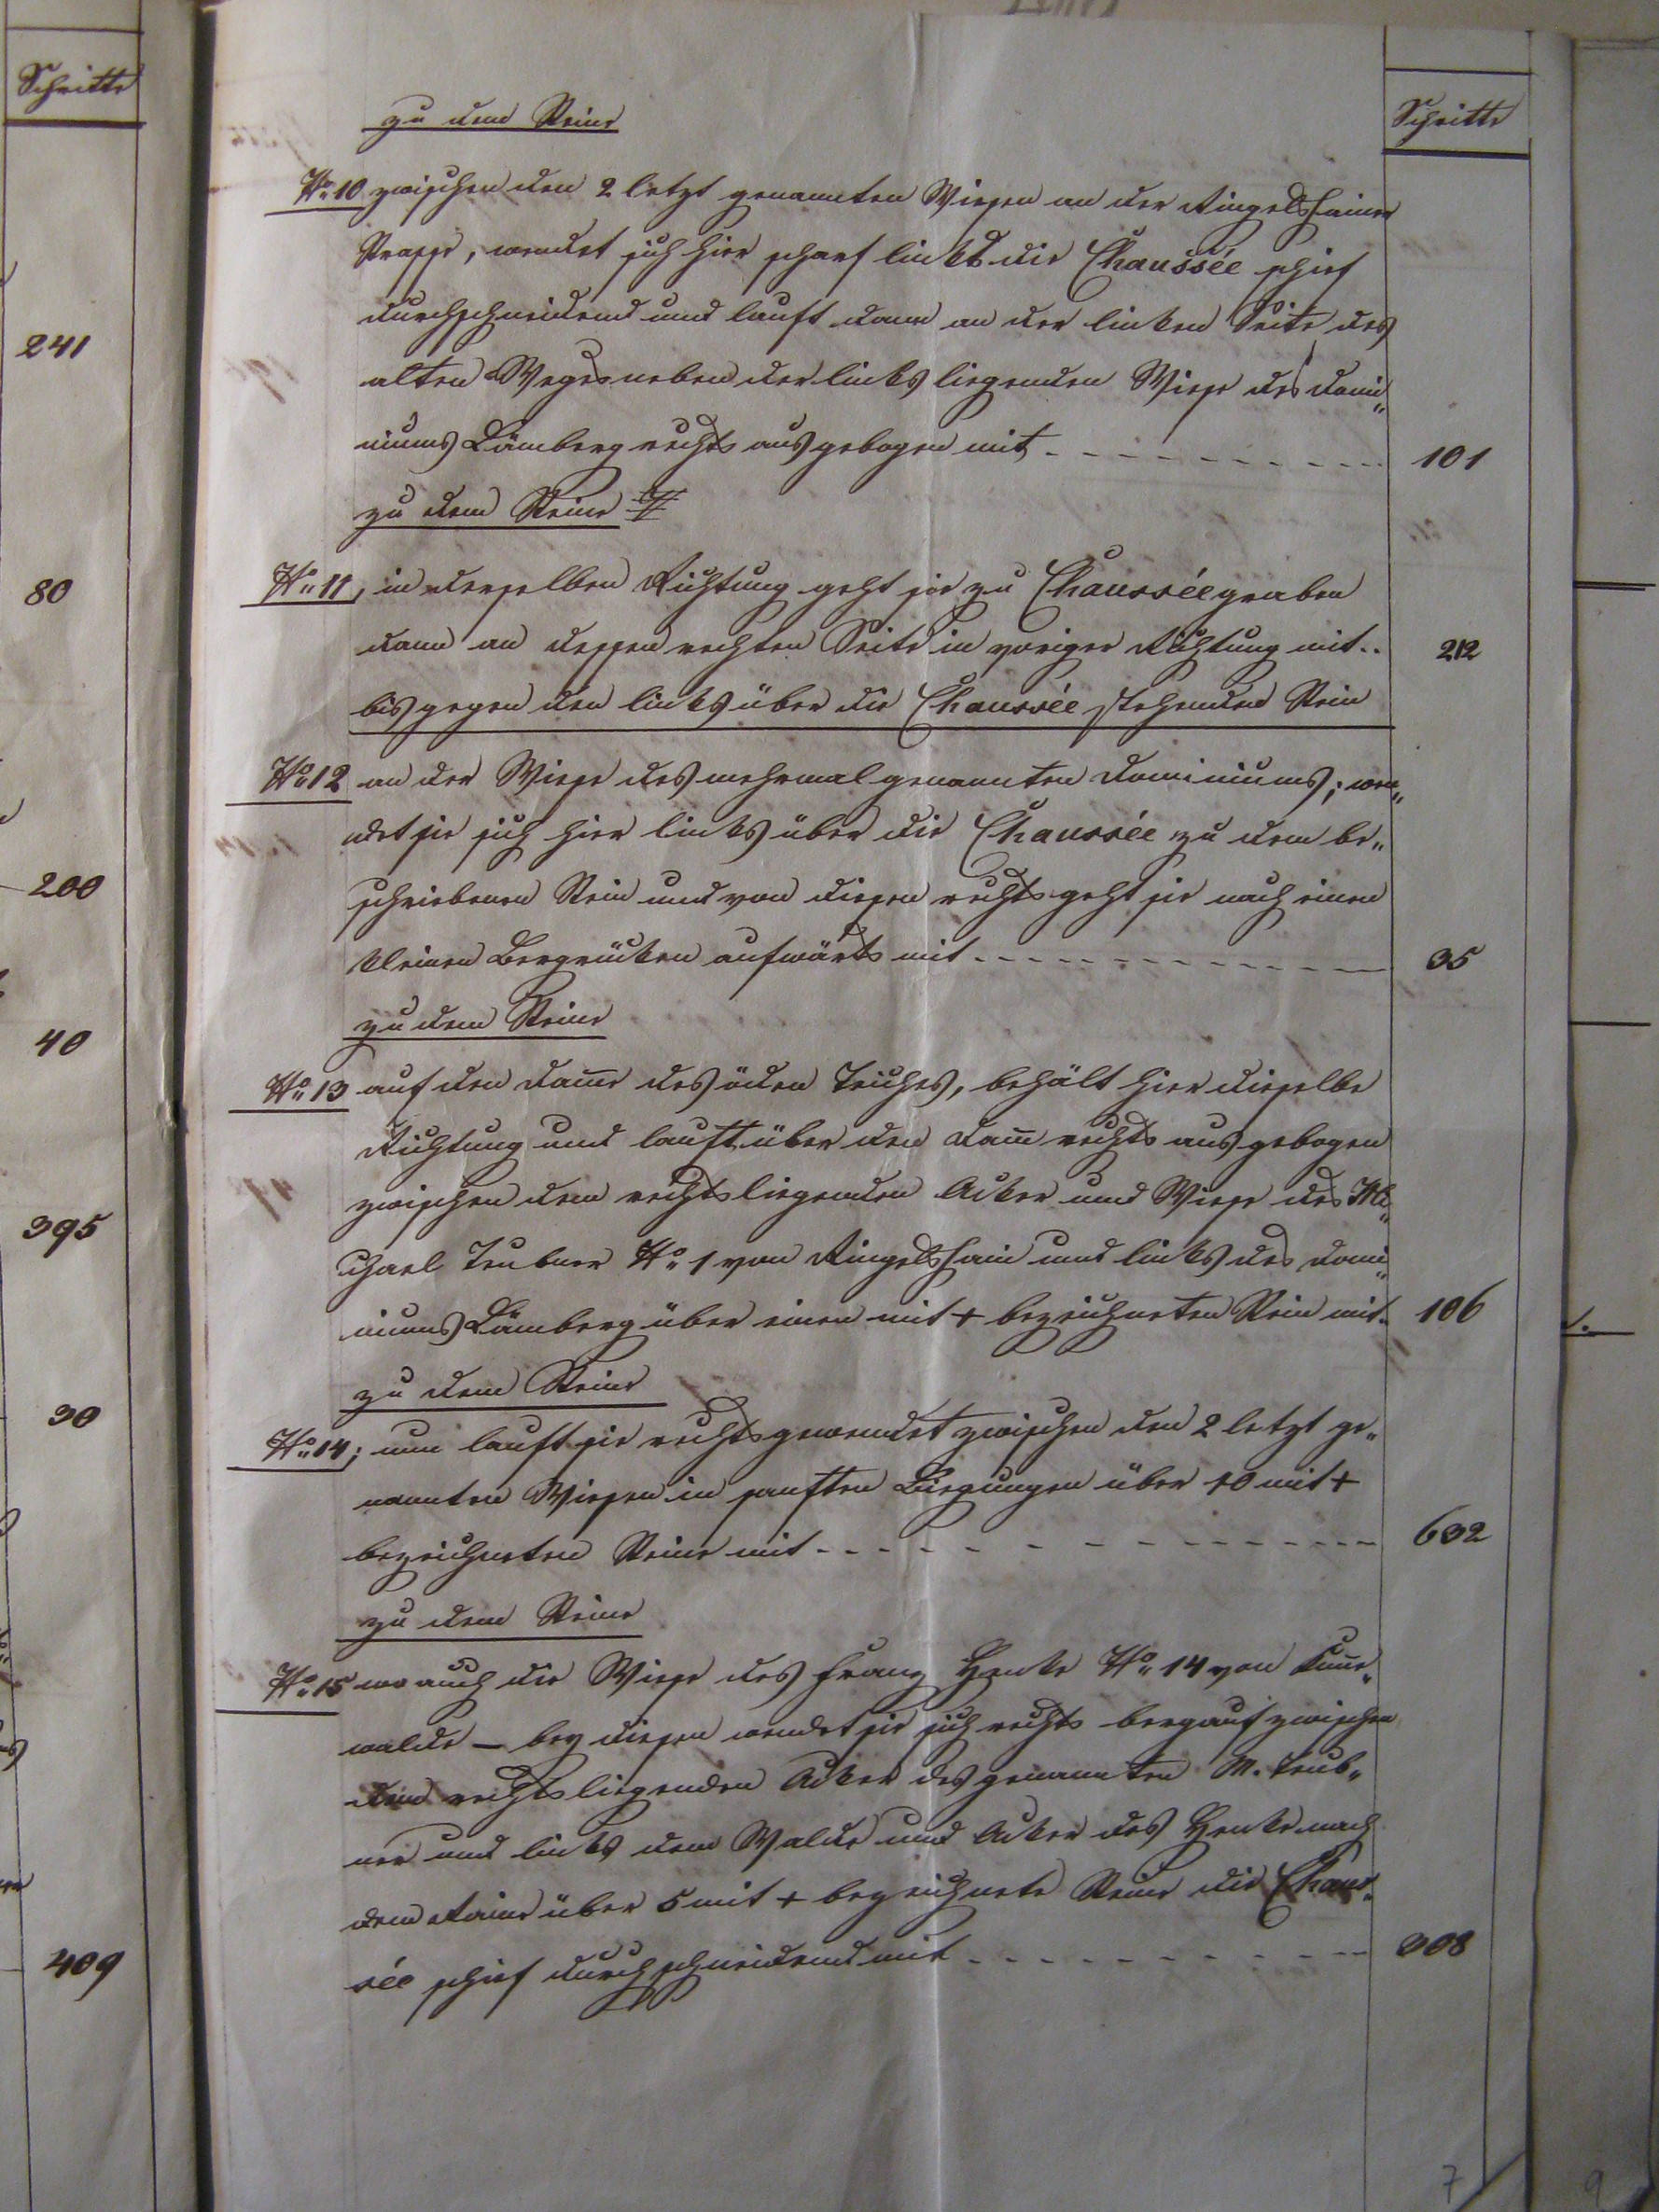 Schritte
241
80
200
40
395
30
409
Schritte
zu dem Steine
No 10 zwischen den 2 letzt genannten Wiesen an der Ringelshainer
Strasse, wendet sich hier scharf links die Chaussée schief
durchschneidend und lauft dann an der linken Seite des
alten Weges neben der links liegenden Wiese des Domi„
niums Lämberg rechts ausgebogen mit - - - - - - - - - 101
zu dem Steine
No 11, in derselben Richtung geht sie zu Chausséegraben
dann an dessen rechten Seite in voriger Richtung mit.. 212
bis gegen den links über die Chaussée stehenden Stein
No 12 an der Wiese des mehrmal genannten Dominiums; wen„
det sie sich hier links über die Chaussée zu dem be„
schriebenen Stein und von diesen rechts geht sie nach einen
kleinen Bergrücken aufwärts mit - - - - - - - - - - - - 35
zu dem Steine
No 13 auf den Dam̄e des öden Teiches, behält hier dieselbe
Richtung und lauft über den Dam̄ rechts ausgebogen
zwischen dem rechts liegenden Acker und Wiese des Mi„
chael Teubner No 1 von Ringelshain und links des Domi„
niums Lämberg über einen mit + bezeichneten Stein mit. 106
zu dem Steine
No 14; nun lauft sie rechts gewendet zwischen den 2 letzt ge„
nannten Wiesen in sanften Biegungen über 10 mit +
bezeichneten Steine mit - - - - - - - - - - - - 632
zu dem Steine
No 15 wo auch die Wiese des Franz Henke No 14 von Kun̄e„
walde — bey diesen wendet sie sich rechts bergauf zwischen
dem rechts liegenden Acker des genannten M. Teub„
ner und links dem Walde und Acker des Henke nach
dem Raine über 5 mit + bezeichnete Steine die Chaus„
sée schief durchschneidend mit - - - - - - - - - 308
7
9